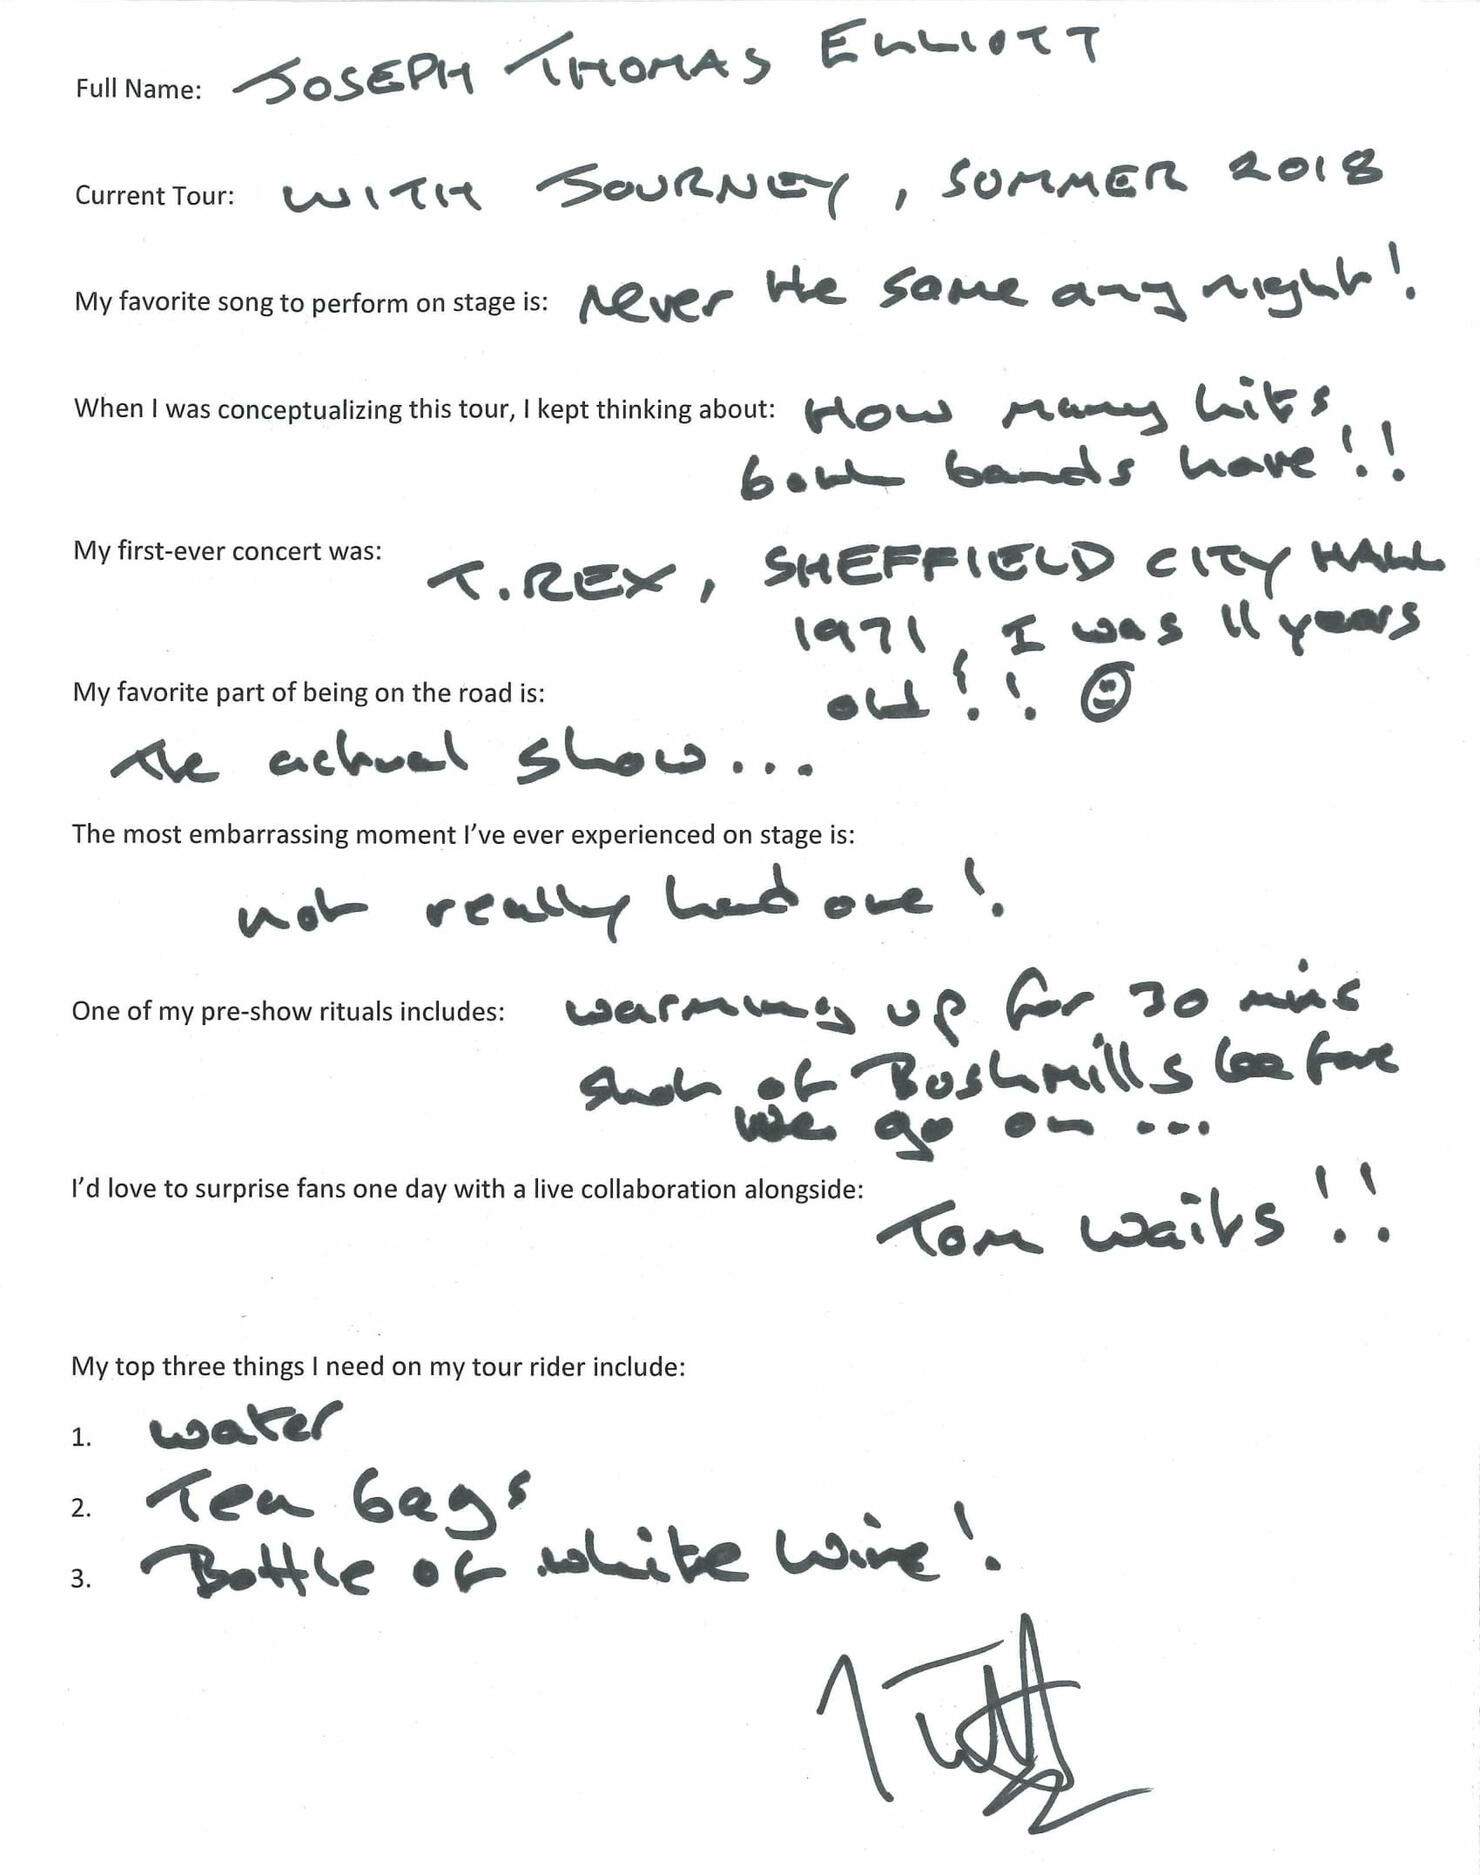 Full Name: JOSEPH THOMAS ELLIOTT
Current Tour: WITH JOURNEY, SUMMER 2018
My favorite song to perform on stage is: Never the same any night!
When I was conceptualizing this tour, I kept thinking about: How many hits
both bands have!!
My first-ever concert was: T.REX, SHEFFIELD CITY HALL
1971, I was 11 years
old!! ☺
My favorite part of being on the road is:
The actual show...
The most embarrassing moment I've ever experienced on stage is:
not really had one!
One of my pre-show rituals includes: warming up for 30 mins
shot of Bushmills before
we go on ...
I'd love to surprise fans one day with a live collaboration alongside:
Tom Waits!!
My top three things I need on my tour rider include:
1. water
2. Tea bags
3. Bottle of white wine!